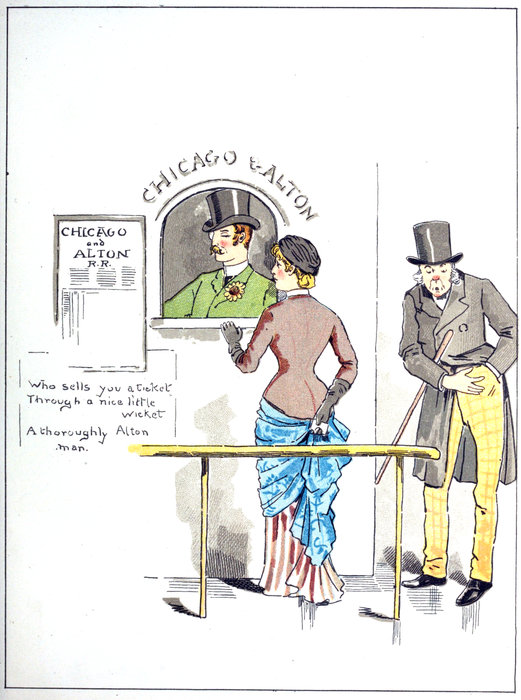 CHICAGO & ALTON
CHICAGO
and
ALTON
R.R.
Who sells you a ticket
Through a nice little
wicket
A thoroughly Alton
man.